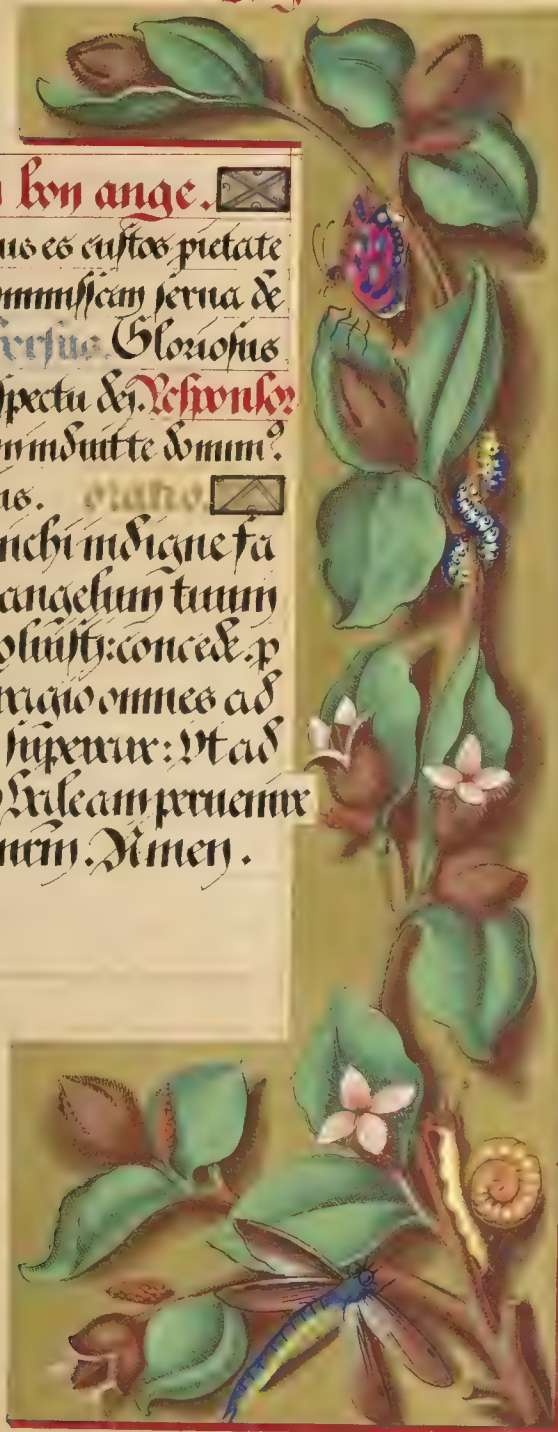 bon ange.
us es custos pietate
ommissam serua &
versus. Gloriosus
spectu dei. Responsor
m induit te domin⁹.
us. oratio.
nchi indigne fa
angelum tuum
oluisti: concede. p
fragio omnes ad
superare: Vt ad
leam peruenire
num. Amen.